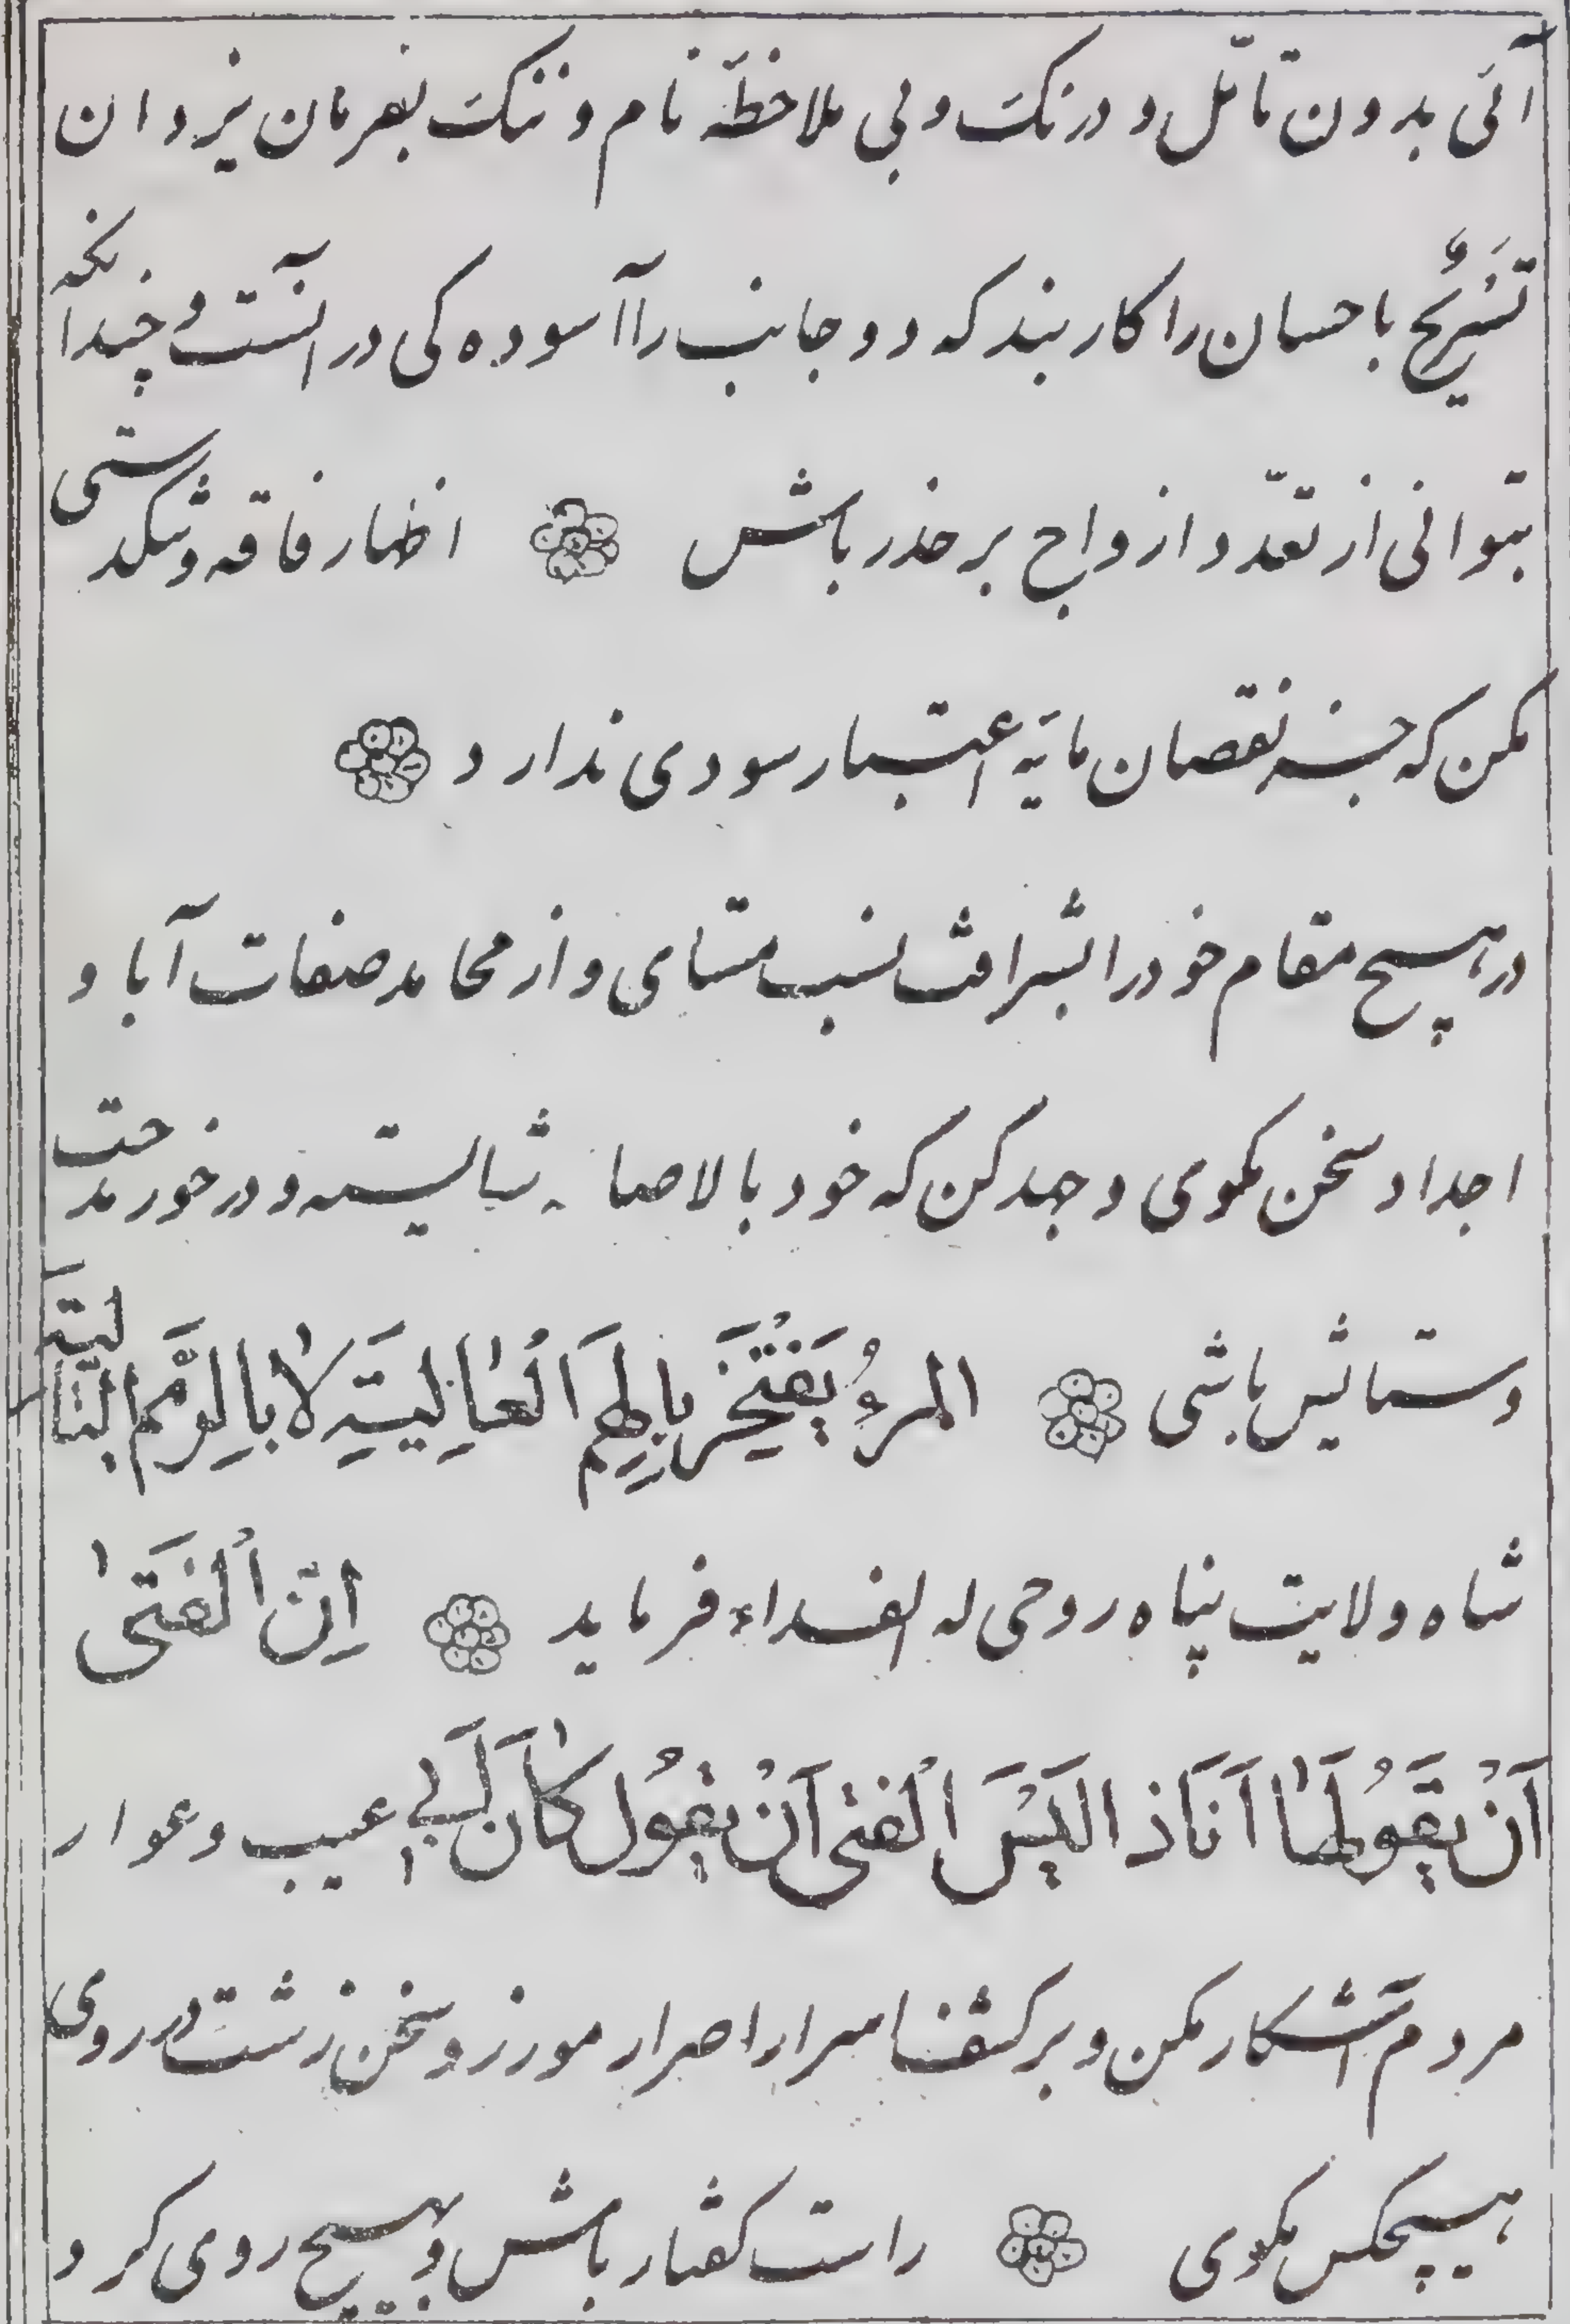 آئی بدون تأمّل و درنکت و بی ملاحظهٔ نام و ننکت بفرمان یزدان
تَسْریحٌ باحسان را کار بند که دو جانب را آسوده کی در آنست و چندانکه
بتوانی از تعدّد ازواج بر حذر باش اظهار فاقه و تنکدستی
مکن که جز نقصان مایهٔ اعتبار سودی ندارد
در هیچ مقام خود را بشرافت نسب مستای و از محامد صفات آبا و
اجداد سخن مکوی و جهد کن که خود بالاصاله شایسته و درخور مدحت
و ستایش باشی المرءُ یَفْتَخِرُ بِالهِمَمِ الْعٰالِیَةِ لاٰ بِالرِّمَمِ الْبٰالِیَةِ
شاه ولایت پناه روحی له الفداء فرماید اِنَّ الْفَتَیٰ
اَنْ یَقُولَ هٰا اَنَا ذا لَیْسَ الْفَتیٰ اَنْ یَقُولَ کٰانَ اَبی عیب و عوار
مردم آشکار مکن و بر کشف اسرار اصرار مورز و سخن زشت در روی
هیچکس مکوی راست کفتار باش و بهیچ روی کرد